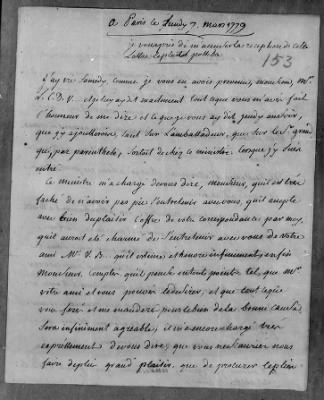 a Paris le Lundy 7. mars 1779
je vous prie de m'accuser la reception de cette
Lettre le plutot possible
153
J'ay vu Samedy, comme je vous en avois prevenu, monsieur, Mr.
L. C. D. V. et je luy ay dit exactement tout ce que vous m'avez fait
l'honneur de me dire et ce que vous ay dit jeudy au soir,
que j'y ajoutterois, tant sur l'ambassadeur, que sur les grands
qui, par parenthese, sortoit de chez ce ministre lorsque j'y suis
entré.
Ce ministre m'a chargé de vous dire, monsieur, qu'il est très
faché de n'avoir pas pu s'entretenir avec vous, qu'il accepte
avec bien du plaisir l'offre de votre correspondance par moy,
qu'il auroit été charmé de s'entretenir avec vous de votre
ami Mr. V. B. qu'il estime et honore infiniment, enfin
Monsieur, Comptés qu'il pense en tout point tel que Mr.
votre ami et vous pouvez le desirer, et que tout ce que
vous ferés et me manderés pour le bien de la bonne cause la
sera infiniment agreable; il m'a encore chargé bien
expressement de vous dire, que vous ne sauriez nous
faire de plus grand plaisir, que de procurer le plein